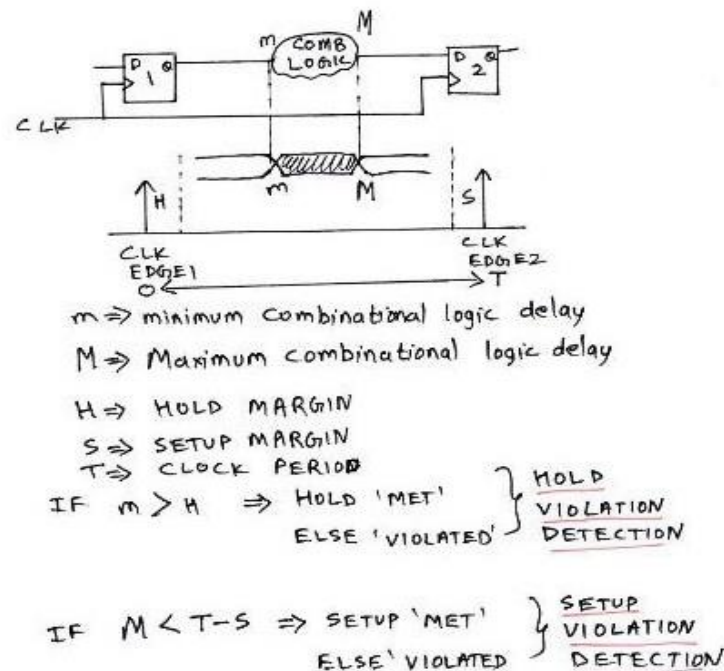 m
M
COMB
LOGIC
D Q
1
D Q
2
CLK
m
M
H
S
CLK
EDGE1
CLK
EDGE2
O
T
m => minimum combinational logic delay
M => Maximum combinational logic delay
H => HOLD MARGIN
S => SETUP MARGIN
T => CLOCK PERIOD
IF m > H => HOLD 'MET'
ELSE 'VIOLATED'
HOLD
VIOLATION
DETECTION
IF M < T-S => SETUP 'MET'
ELSE 'VIOLATED
SETUP
VIOLATION
DETECTION